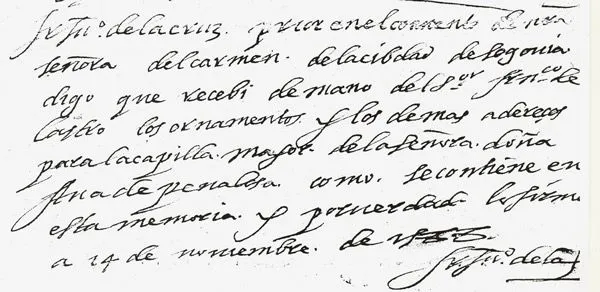 fr Juº. de la cruz. prior en el convento de nrã
señora del carmen. de la cibdad de segovia
digo que recebi de mano del S.or fr.nco de
castro los ornamentos. y los demas adereços
para la capilla. mayor. de la señora. doña
Ana de peñalosa. como. se contiene en
esta memoria. y por verdad lo firme
a 14 de noviembre. de
fr. Juº. de la